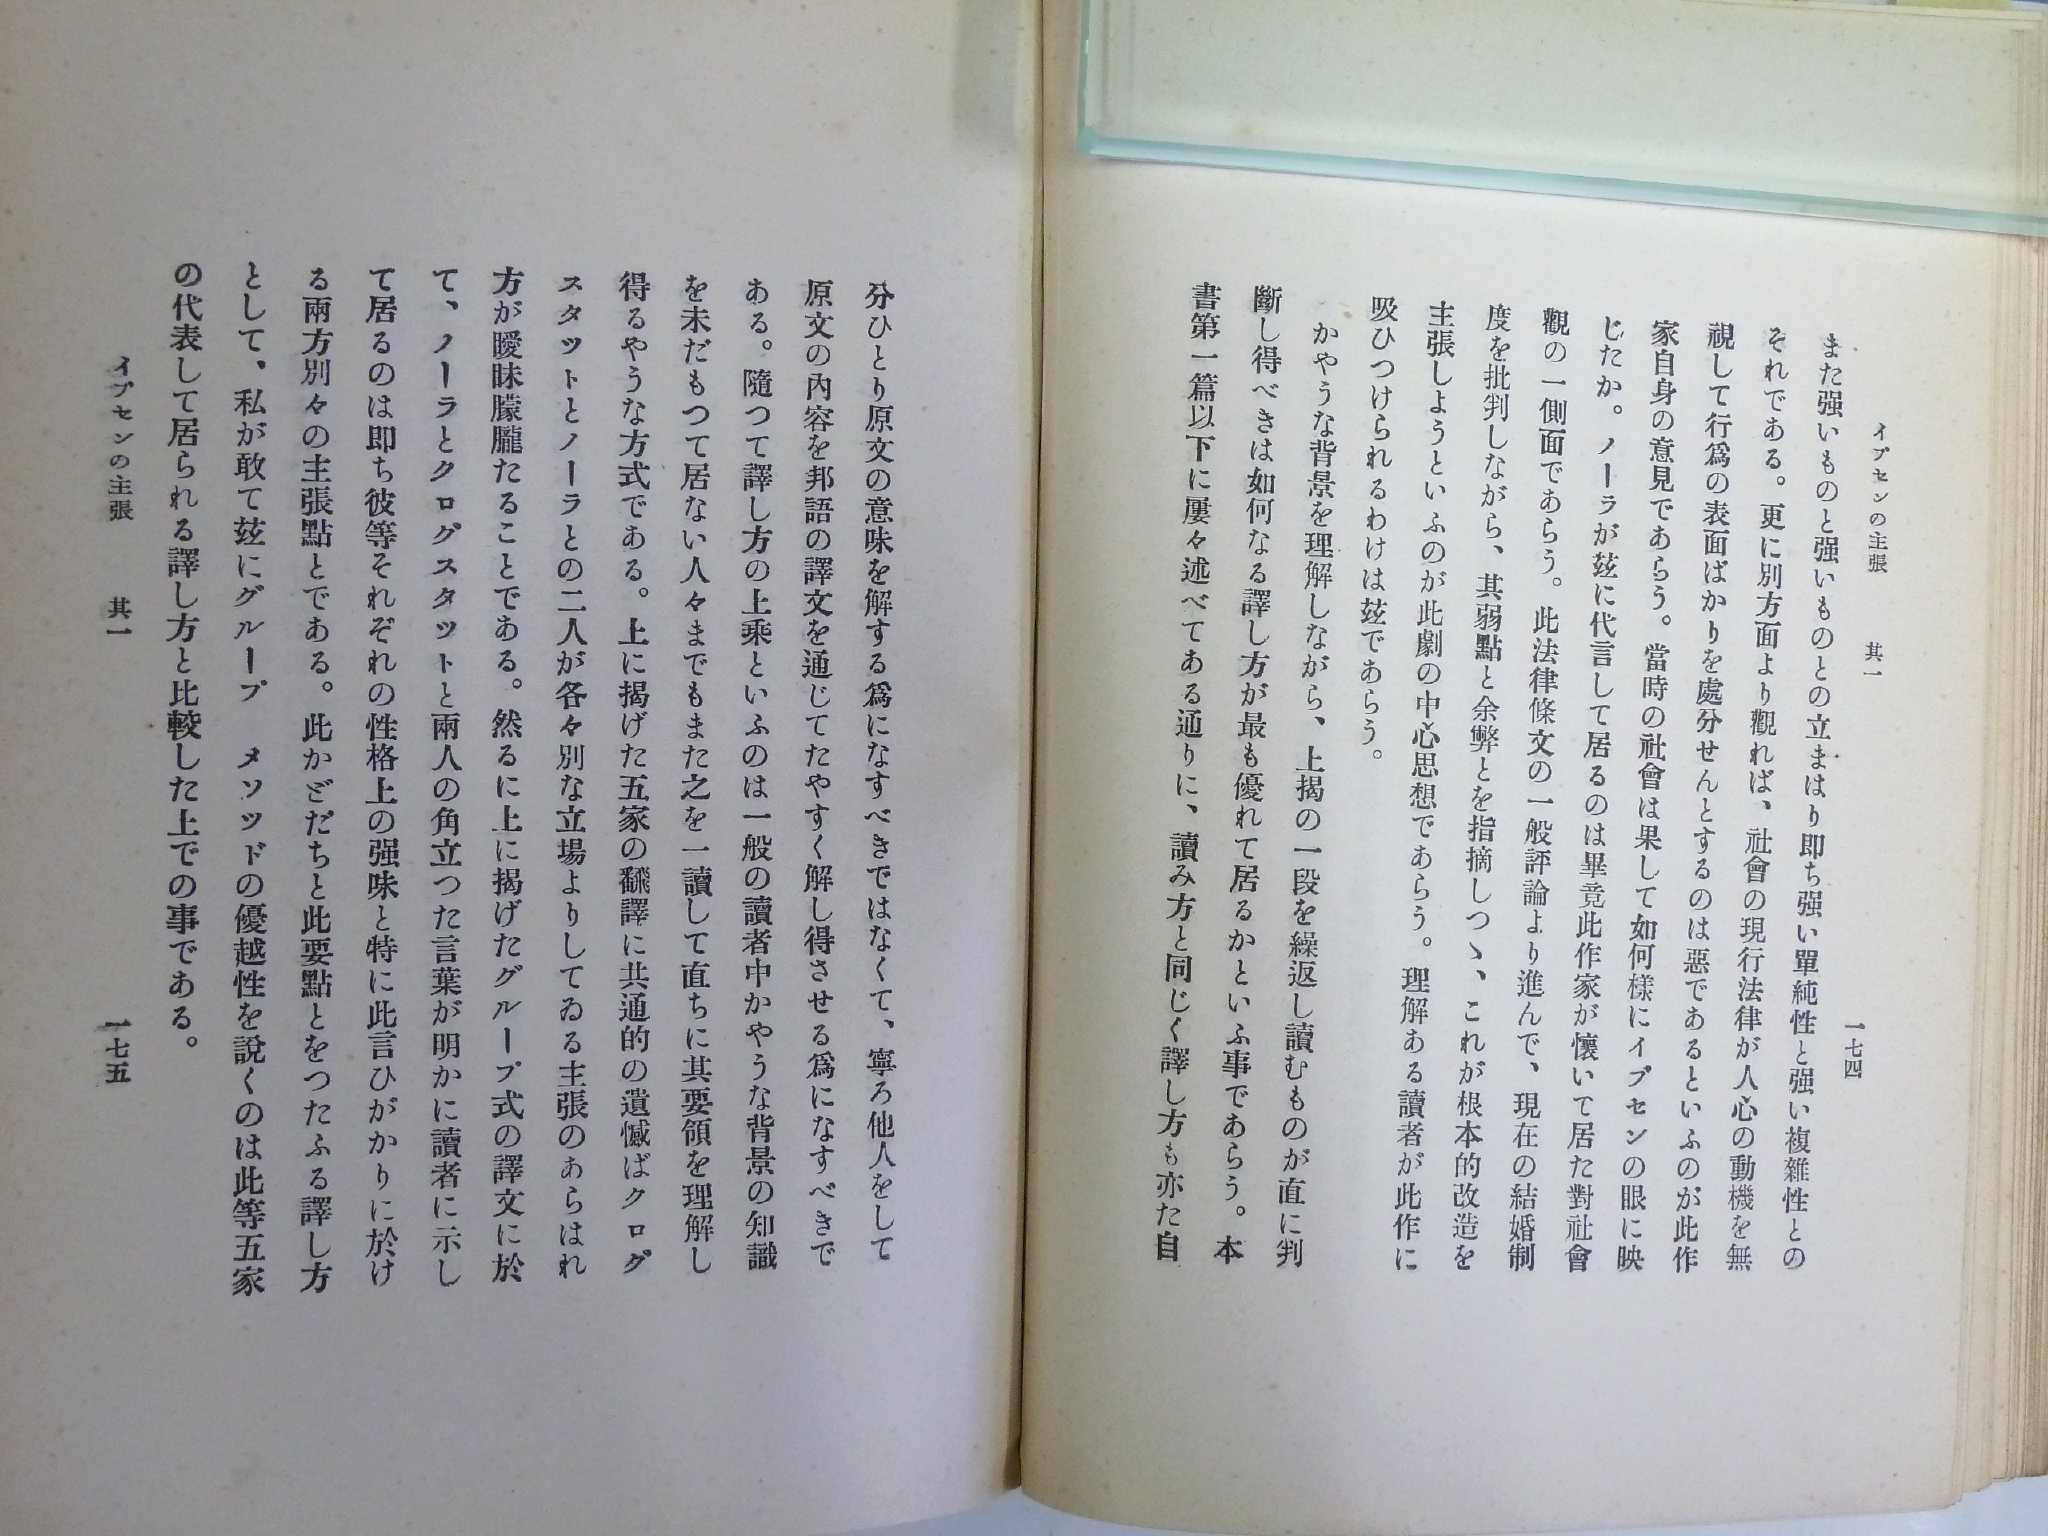 イプセンの主張　其一
一七四
また强いものと强いものとの立まはり即ち强い單純性と强い複雜性との
それである。更に別方面より觀れば、社會の現行法律が人心の動機を無
視して行爲の表面ばかりを處分せんとするのは惡であるといふのが此作
家自身の意見であらう。當時の社會は果して如何樣にイプセンの眼に映
じたか。ノーラが玆に代言して居るのは畢竟此作家が懷いて居た對社會
觀の一側面であらう。此法律條文の一般評論より進んで、現在の結婚制
度を批判しながら、其弱點と余弊とを指摘しつゝ、これが根本的改造を
主張しようといふのが此劇の中心思想であらう。理解ある讀者が此作に
吸ひつけられるわけは玆であらう。
かやうな背景を理解しながら、上揭の一段を繰返し讀むものが直に判
斷し得べきは如何なる譯し方が最も優れて居るかといふ事であらう。本
書第一篇以下に屢々述べてある通りに、讀み方と同じく譯し方も亦た自
分ひとり原文の意味を解する爲になすべきではなくて、寧ろ他人をして
原文の內容を邦語の譯文を通じてたやすく解し得させる爲になすべきで
ある。隨つて譯し方の上乘といふのは一般の讀者中かやうな背景の知識
を未だもつて居ない人々までもまた之を一讀して直ちに其要領を理解し
得るやうな方式である。上に揭げた五家の飜譯に共通的の遺憾ばクログ
スタットとノーラとの二人が各々別な立場よりしてゐる主張のあらはれ
方が曖昧朦朧たることである。然るに上に揭げたグループ式の譯文に於
て、ノーラとクログスタットと兩人の角立つた言葉が明かに讀者に示し
て居るのは即ち彼等それぞれの性格上の强味と特に此言ひがかりに於け
る兩方別々の主張點とである。此かどだちと此要點とをつたふる譯し方
として、私が敢て玆にグループ　メソッドの優越性を說くのは此等五家
の代表して居られる譯し方と比較した上での事である。
イプセンの主張　其一
一七五